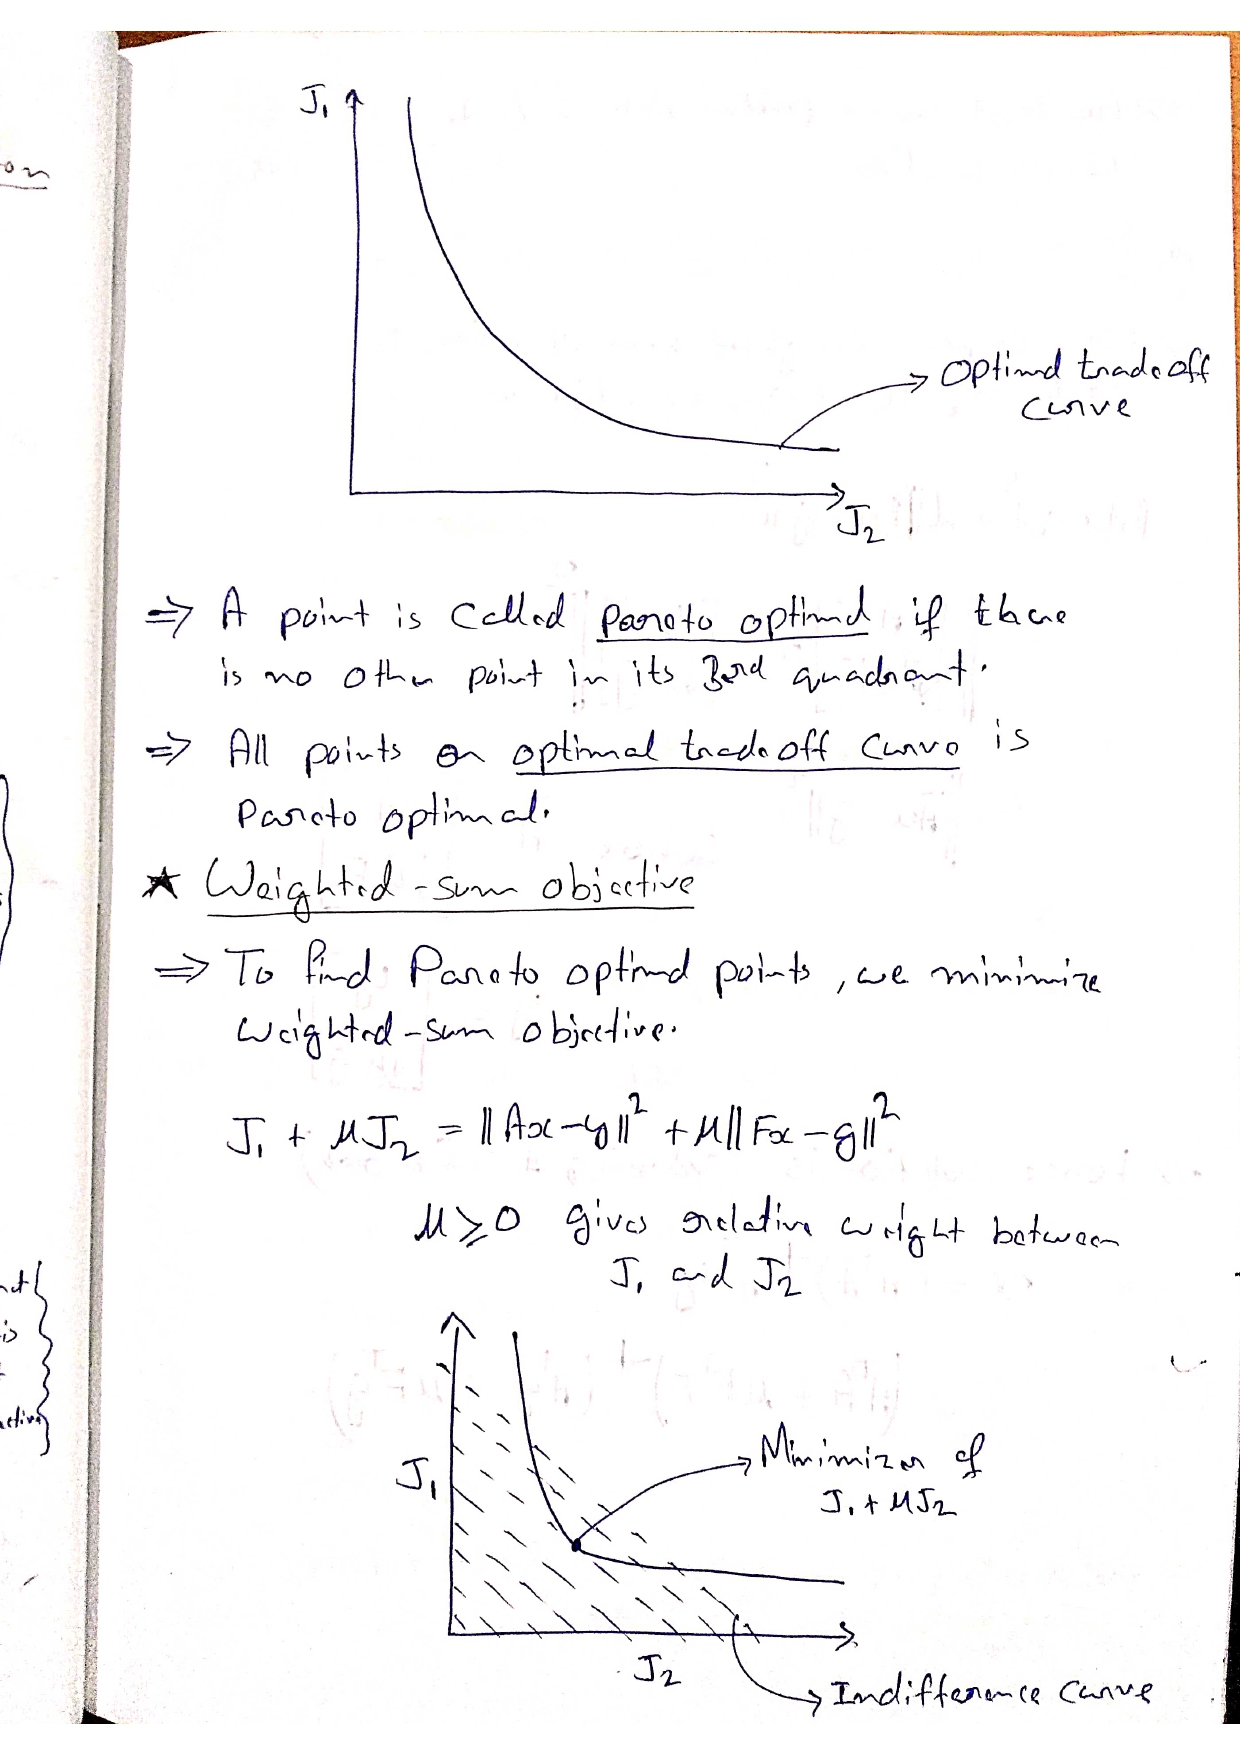 on
J₁
Optimal tradeoff
curve
J₂
⇒ A point is called Pareto optimal if there
is no other point in its 3rd quadrant.
⇒ All points on optimal tradeoff curve is
Pareto optimal.
★ Weighted-sum objective
⇒ To find Pareto optimal points, we minimize
weighted-sum objective.
J₁ + μJ₂ = ||Ax-y||² + μ||Fx-g||²
μ ≥ 0 gives relative weight between
J₁ and J₂
is
J₁
Minimizer of
J₁ + μJ₂
J₂
Indifference curve